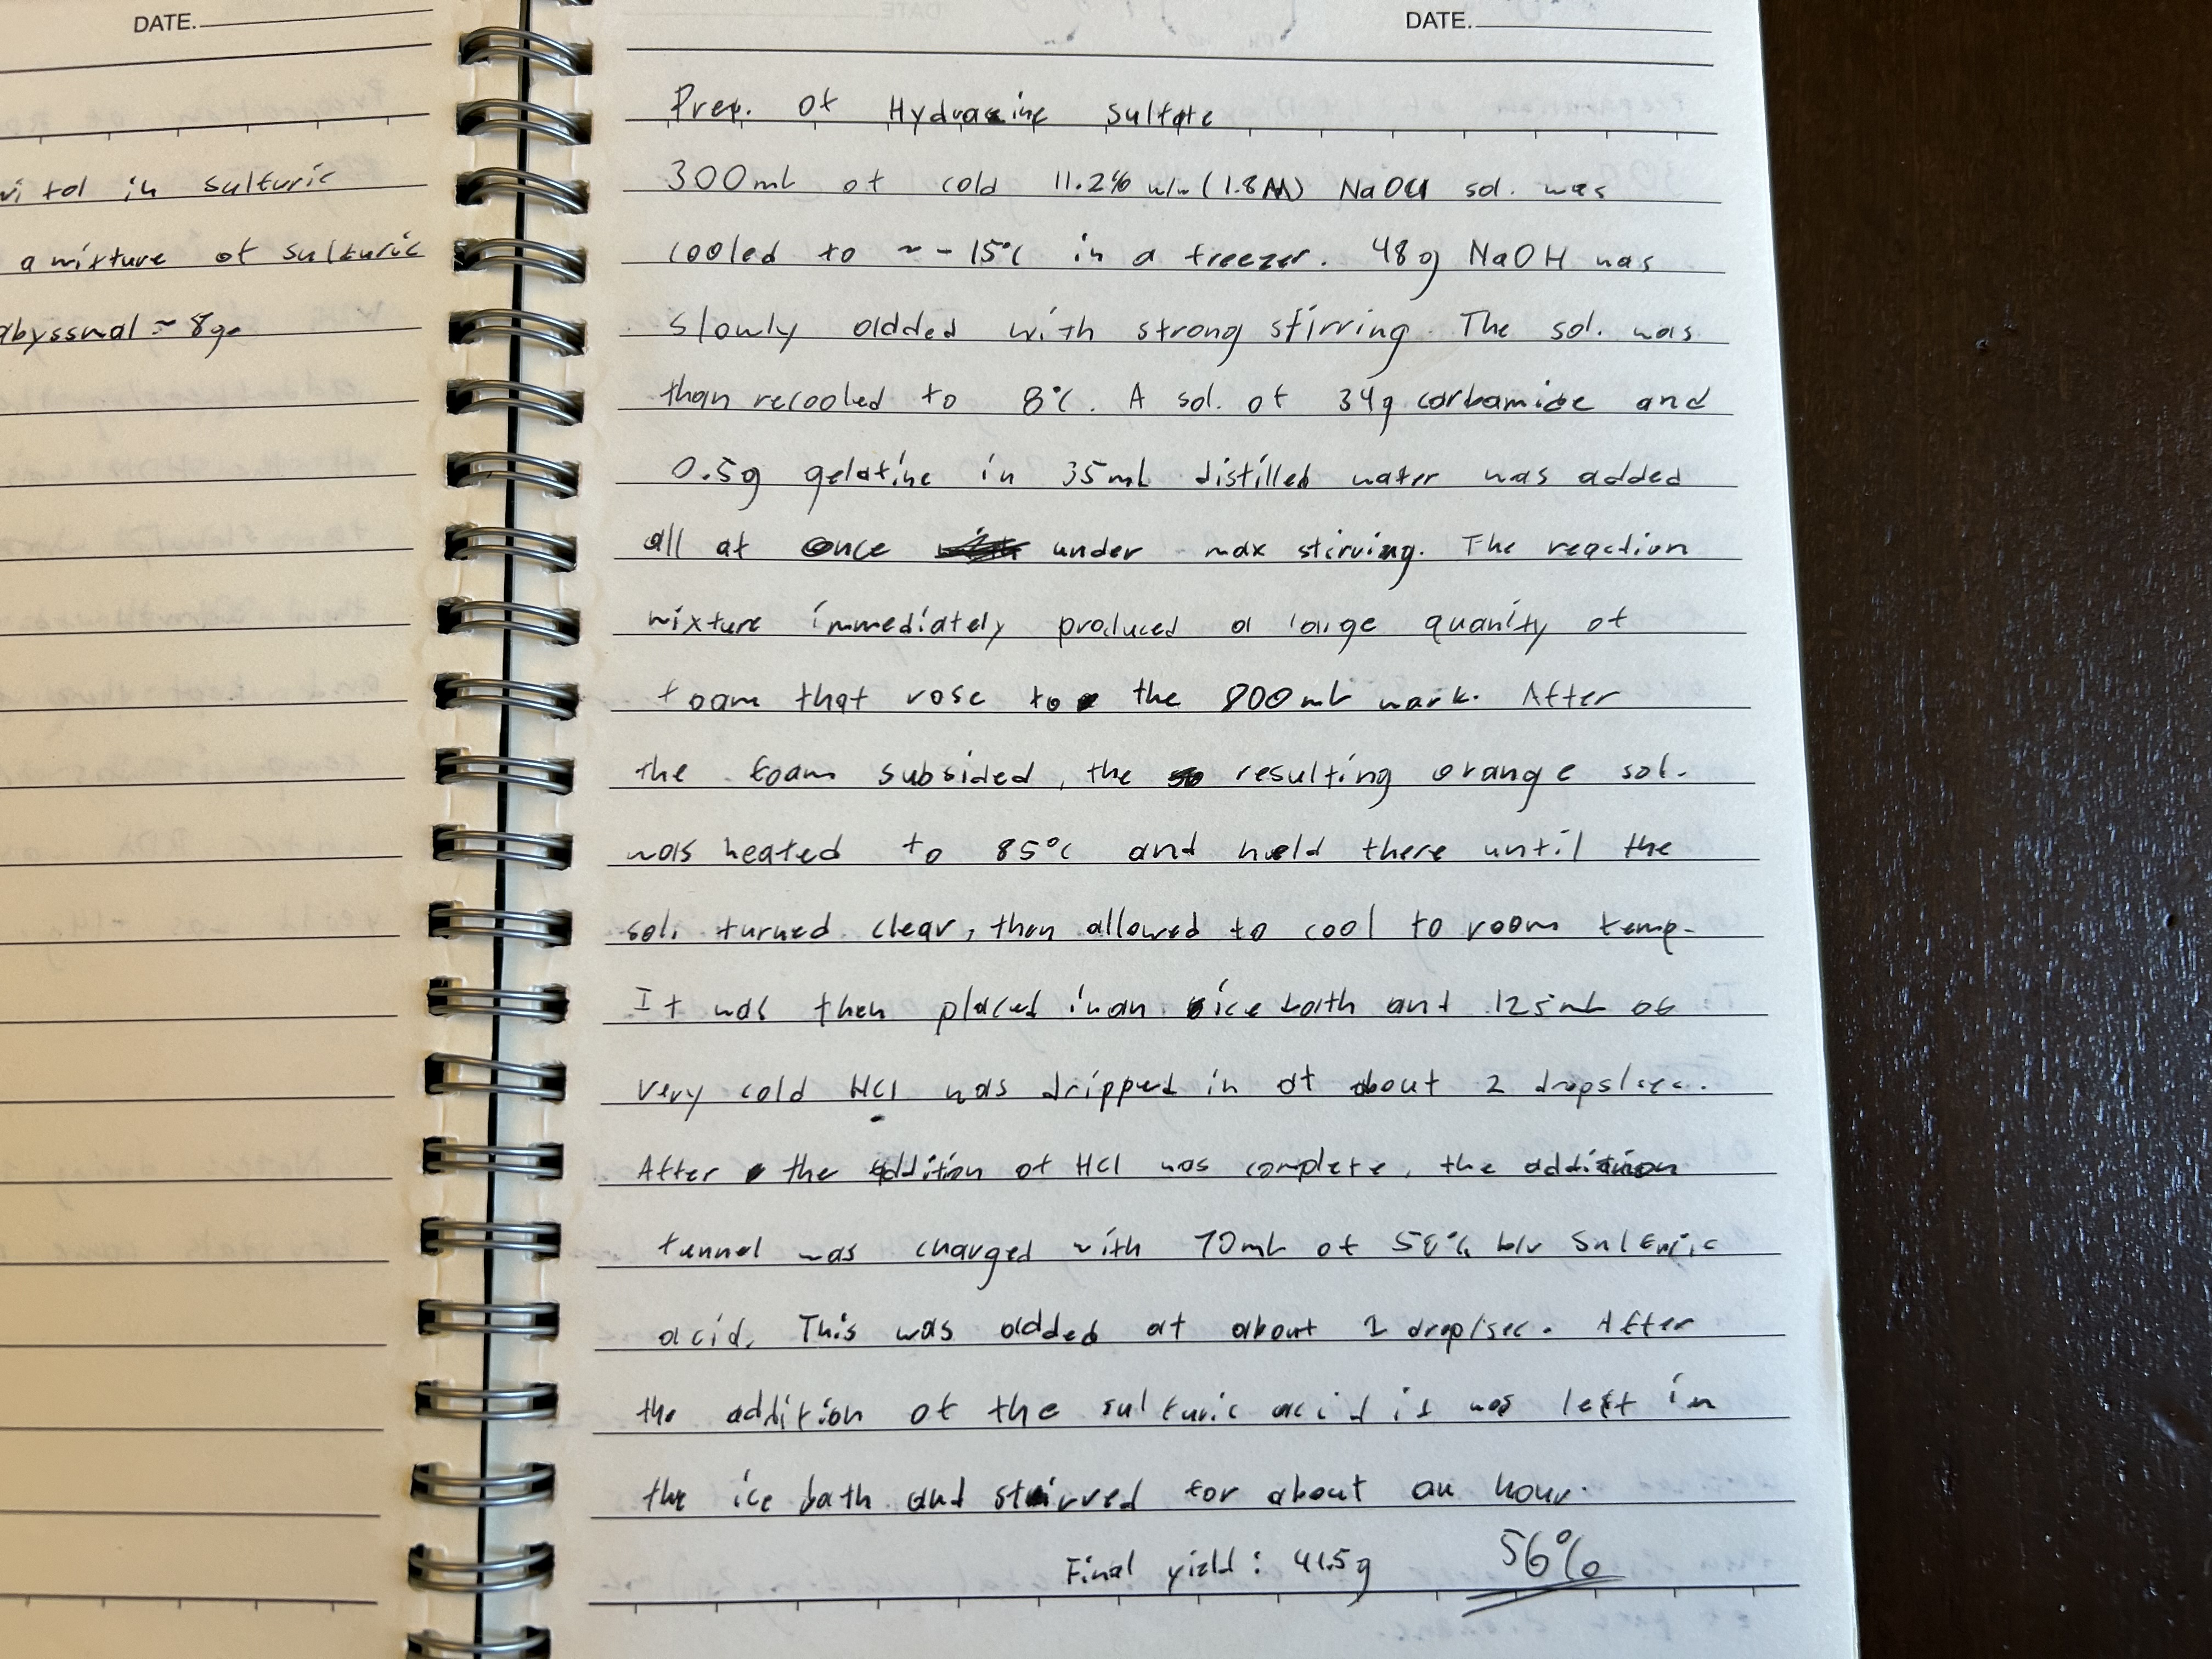 DATE.
itol in sulfuric
a mixture of sulfuric
abyssmal ~ 8g.
DATE.
Prep. of Hydrazine Sulfate
300mL of cold 11.2% w/w (1.8M) NaOCl sol. was
cooled to ~ -15°C in a freezer. 48g NaOH was
slowly added with strong stirring. The sol. was
than recooled to 8°C. A sol. of 34g carbamide and
0.5g gelatine in 35mL distilled water was added
all at once under max stirving. The reaction
mixture immediately produced a large quanity of
foam that rose to the 800mL mark. After
the foam subsided, the resulting orange sol.
was heated to 85°C and held there until the
sol. turned clear, then allowed to cool to room temp.
It was then placed in an ice bath and 125mL of
very cold HCl was dripped in at about 2 drops/sec.
After the addition of HCl was complete, the addition
funnel was charged with 70mL of sulfuric
acid. This was added at about 1 drop/sec. After
the addition of the sulfuric acid it was left in
the ice bath and stirred for about an hour.
Final yield: 41.5g 56%